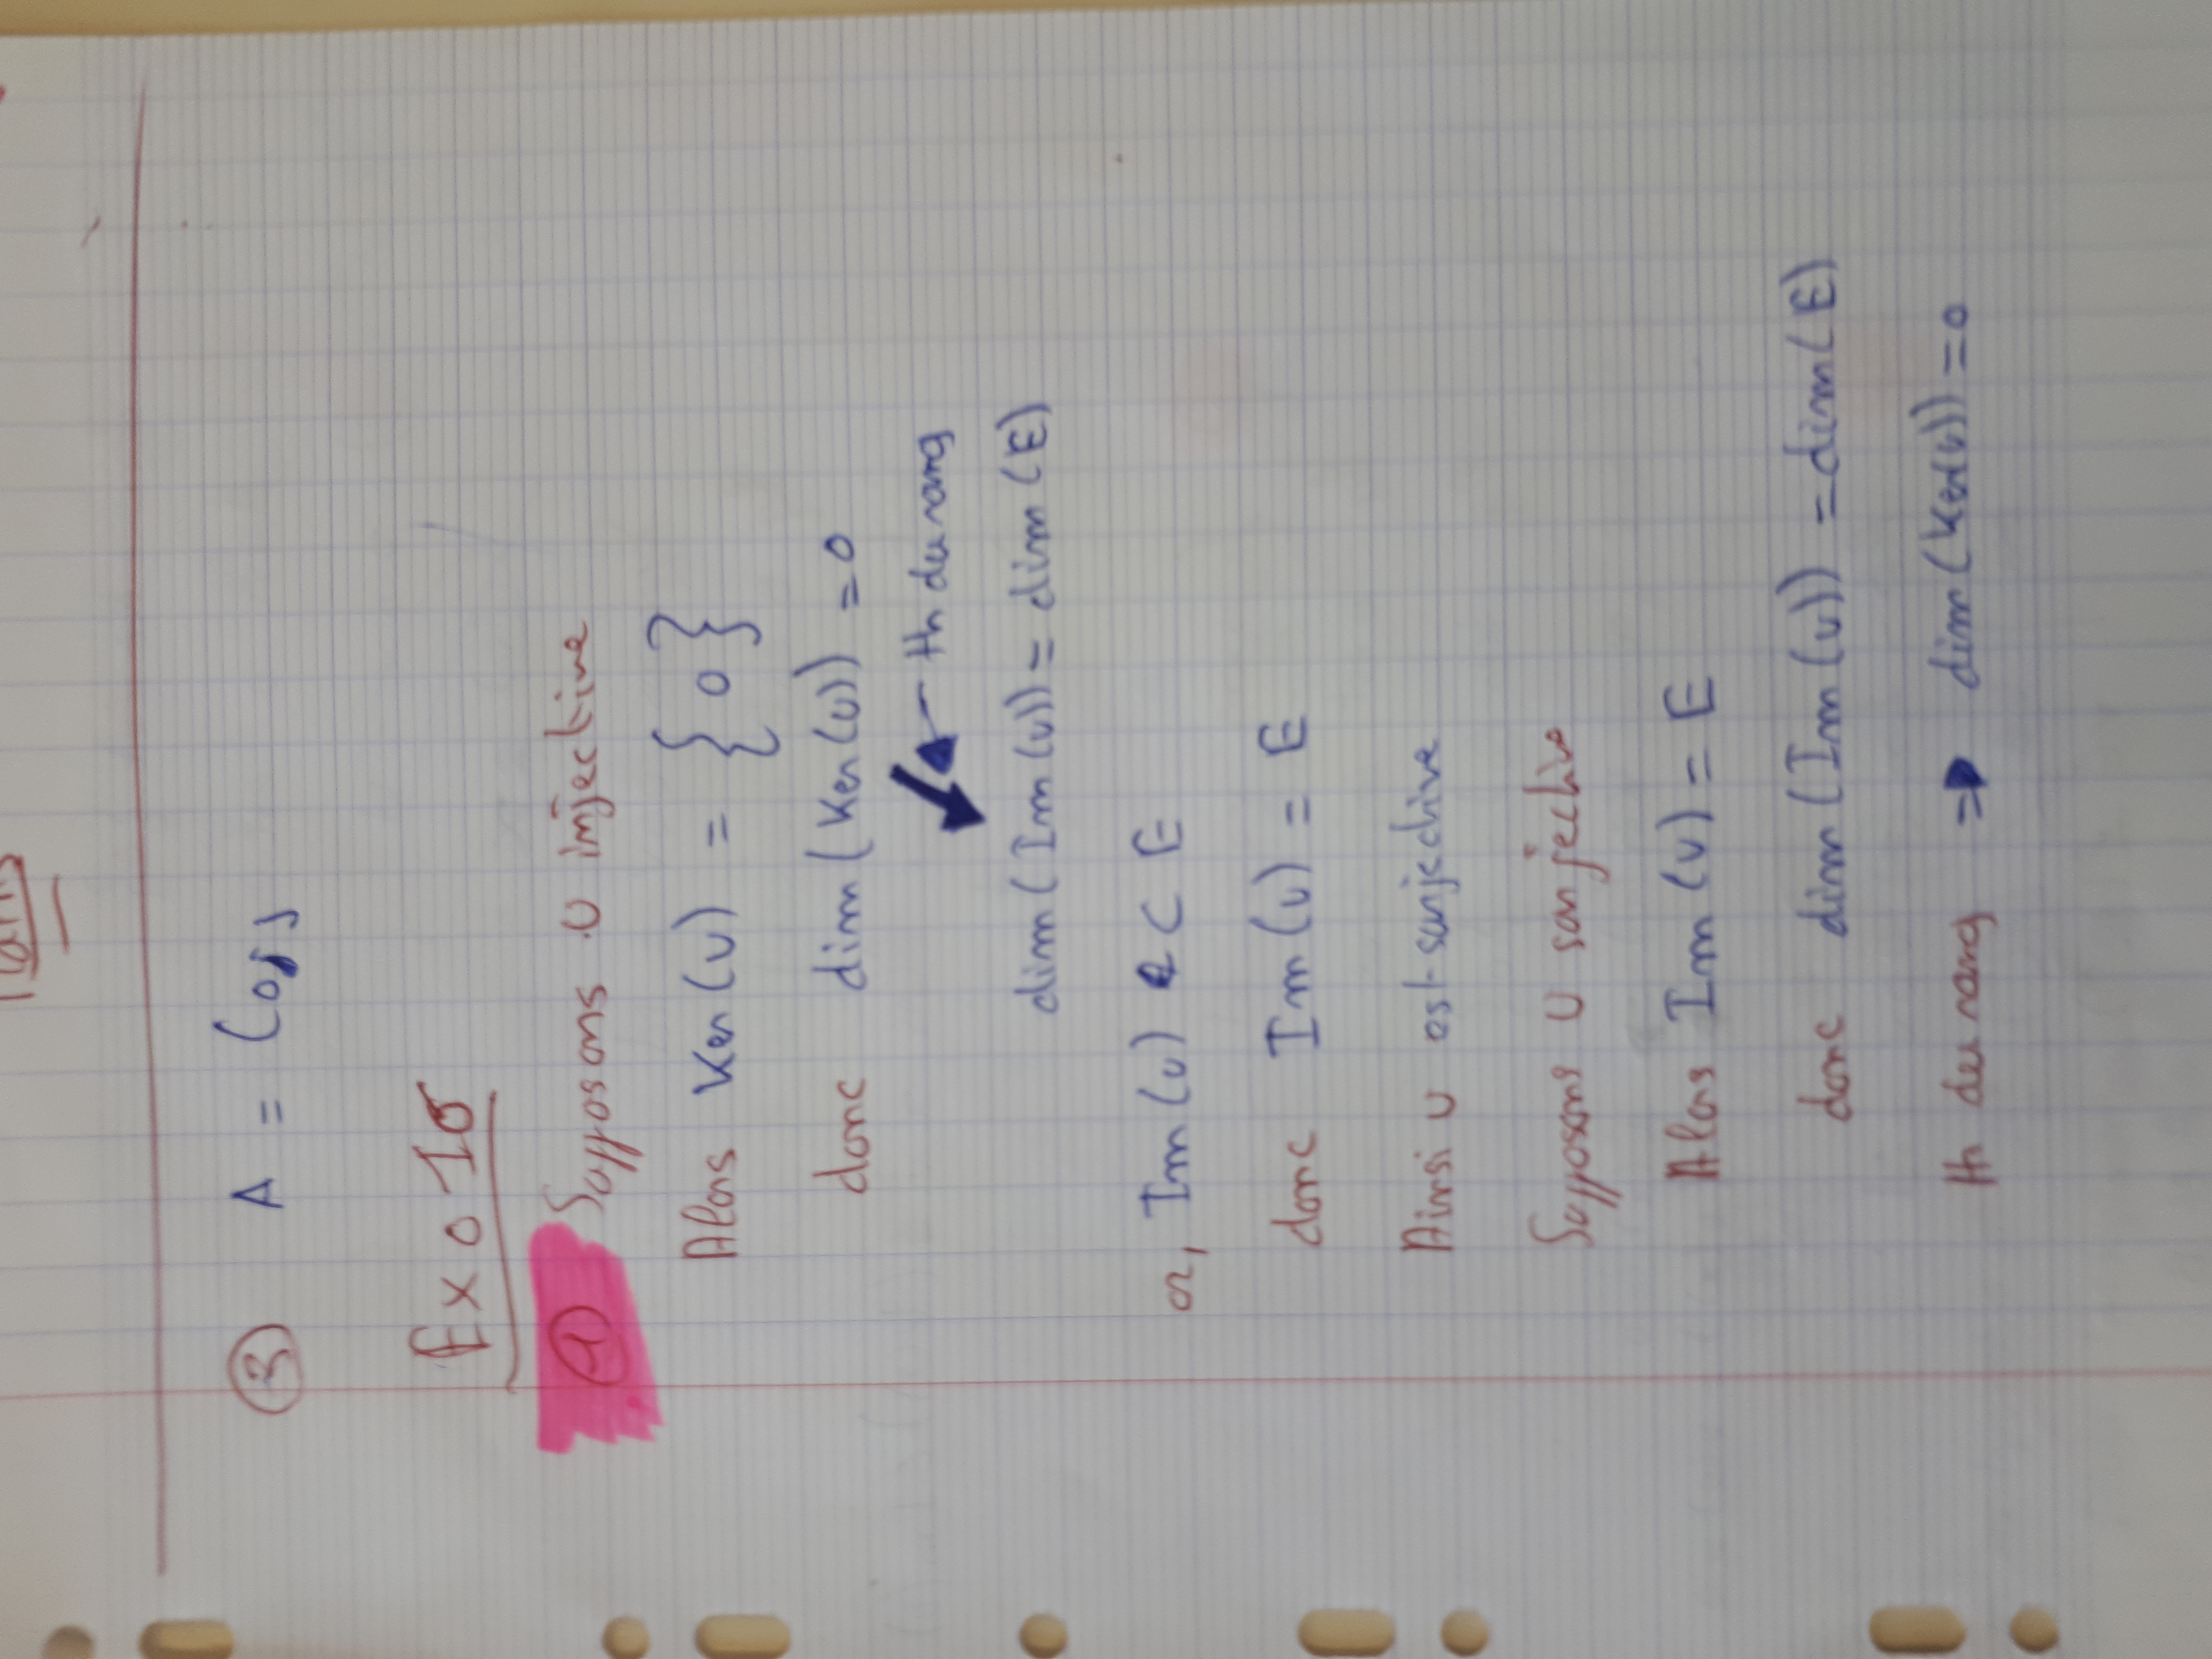 ③ A = (
Exo 10
① Supposons U injective
Alors Ker(u) = {0}
donc dim(Ker(u)) = 0
th du rang
dim(Im(u)) = dim(E)
or, Im(u) ⊂ E
donc Im(u) = E
Ainsi u est surjective
Supposons U surjective
Alors Im(u) = E
donc dim(Im(u)) = dim(E)
th du rang ⇒ dim(Ker(u)) = 0